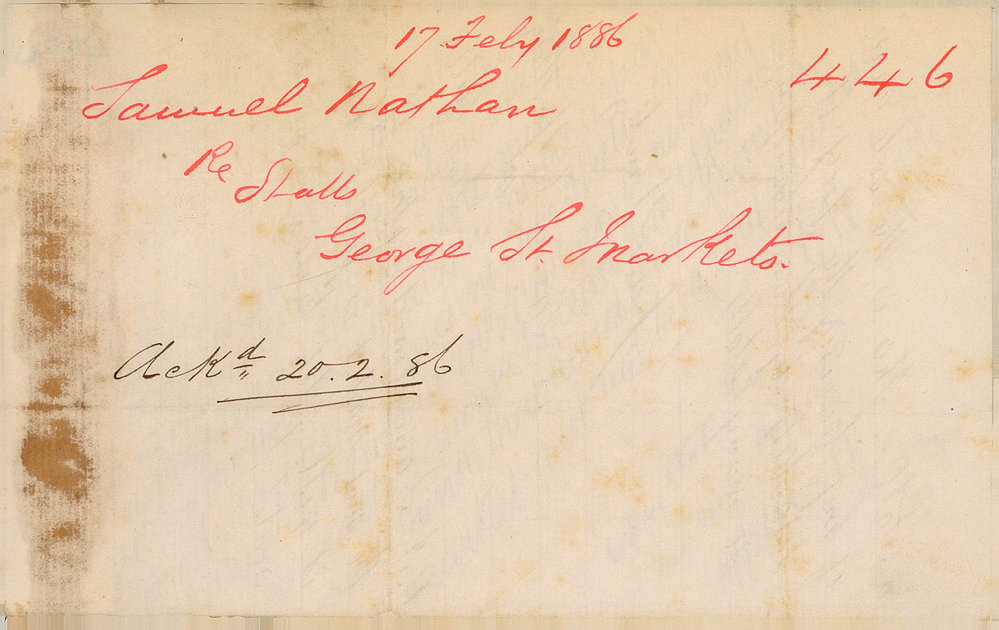 17 Feby 1886
446
Samuel Nathan
Re Stalls
George St. Markets.
Ackd 20.2.86